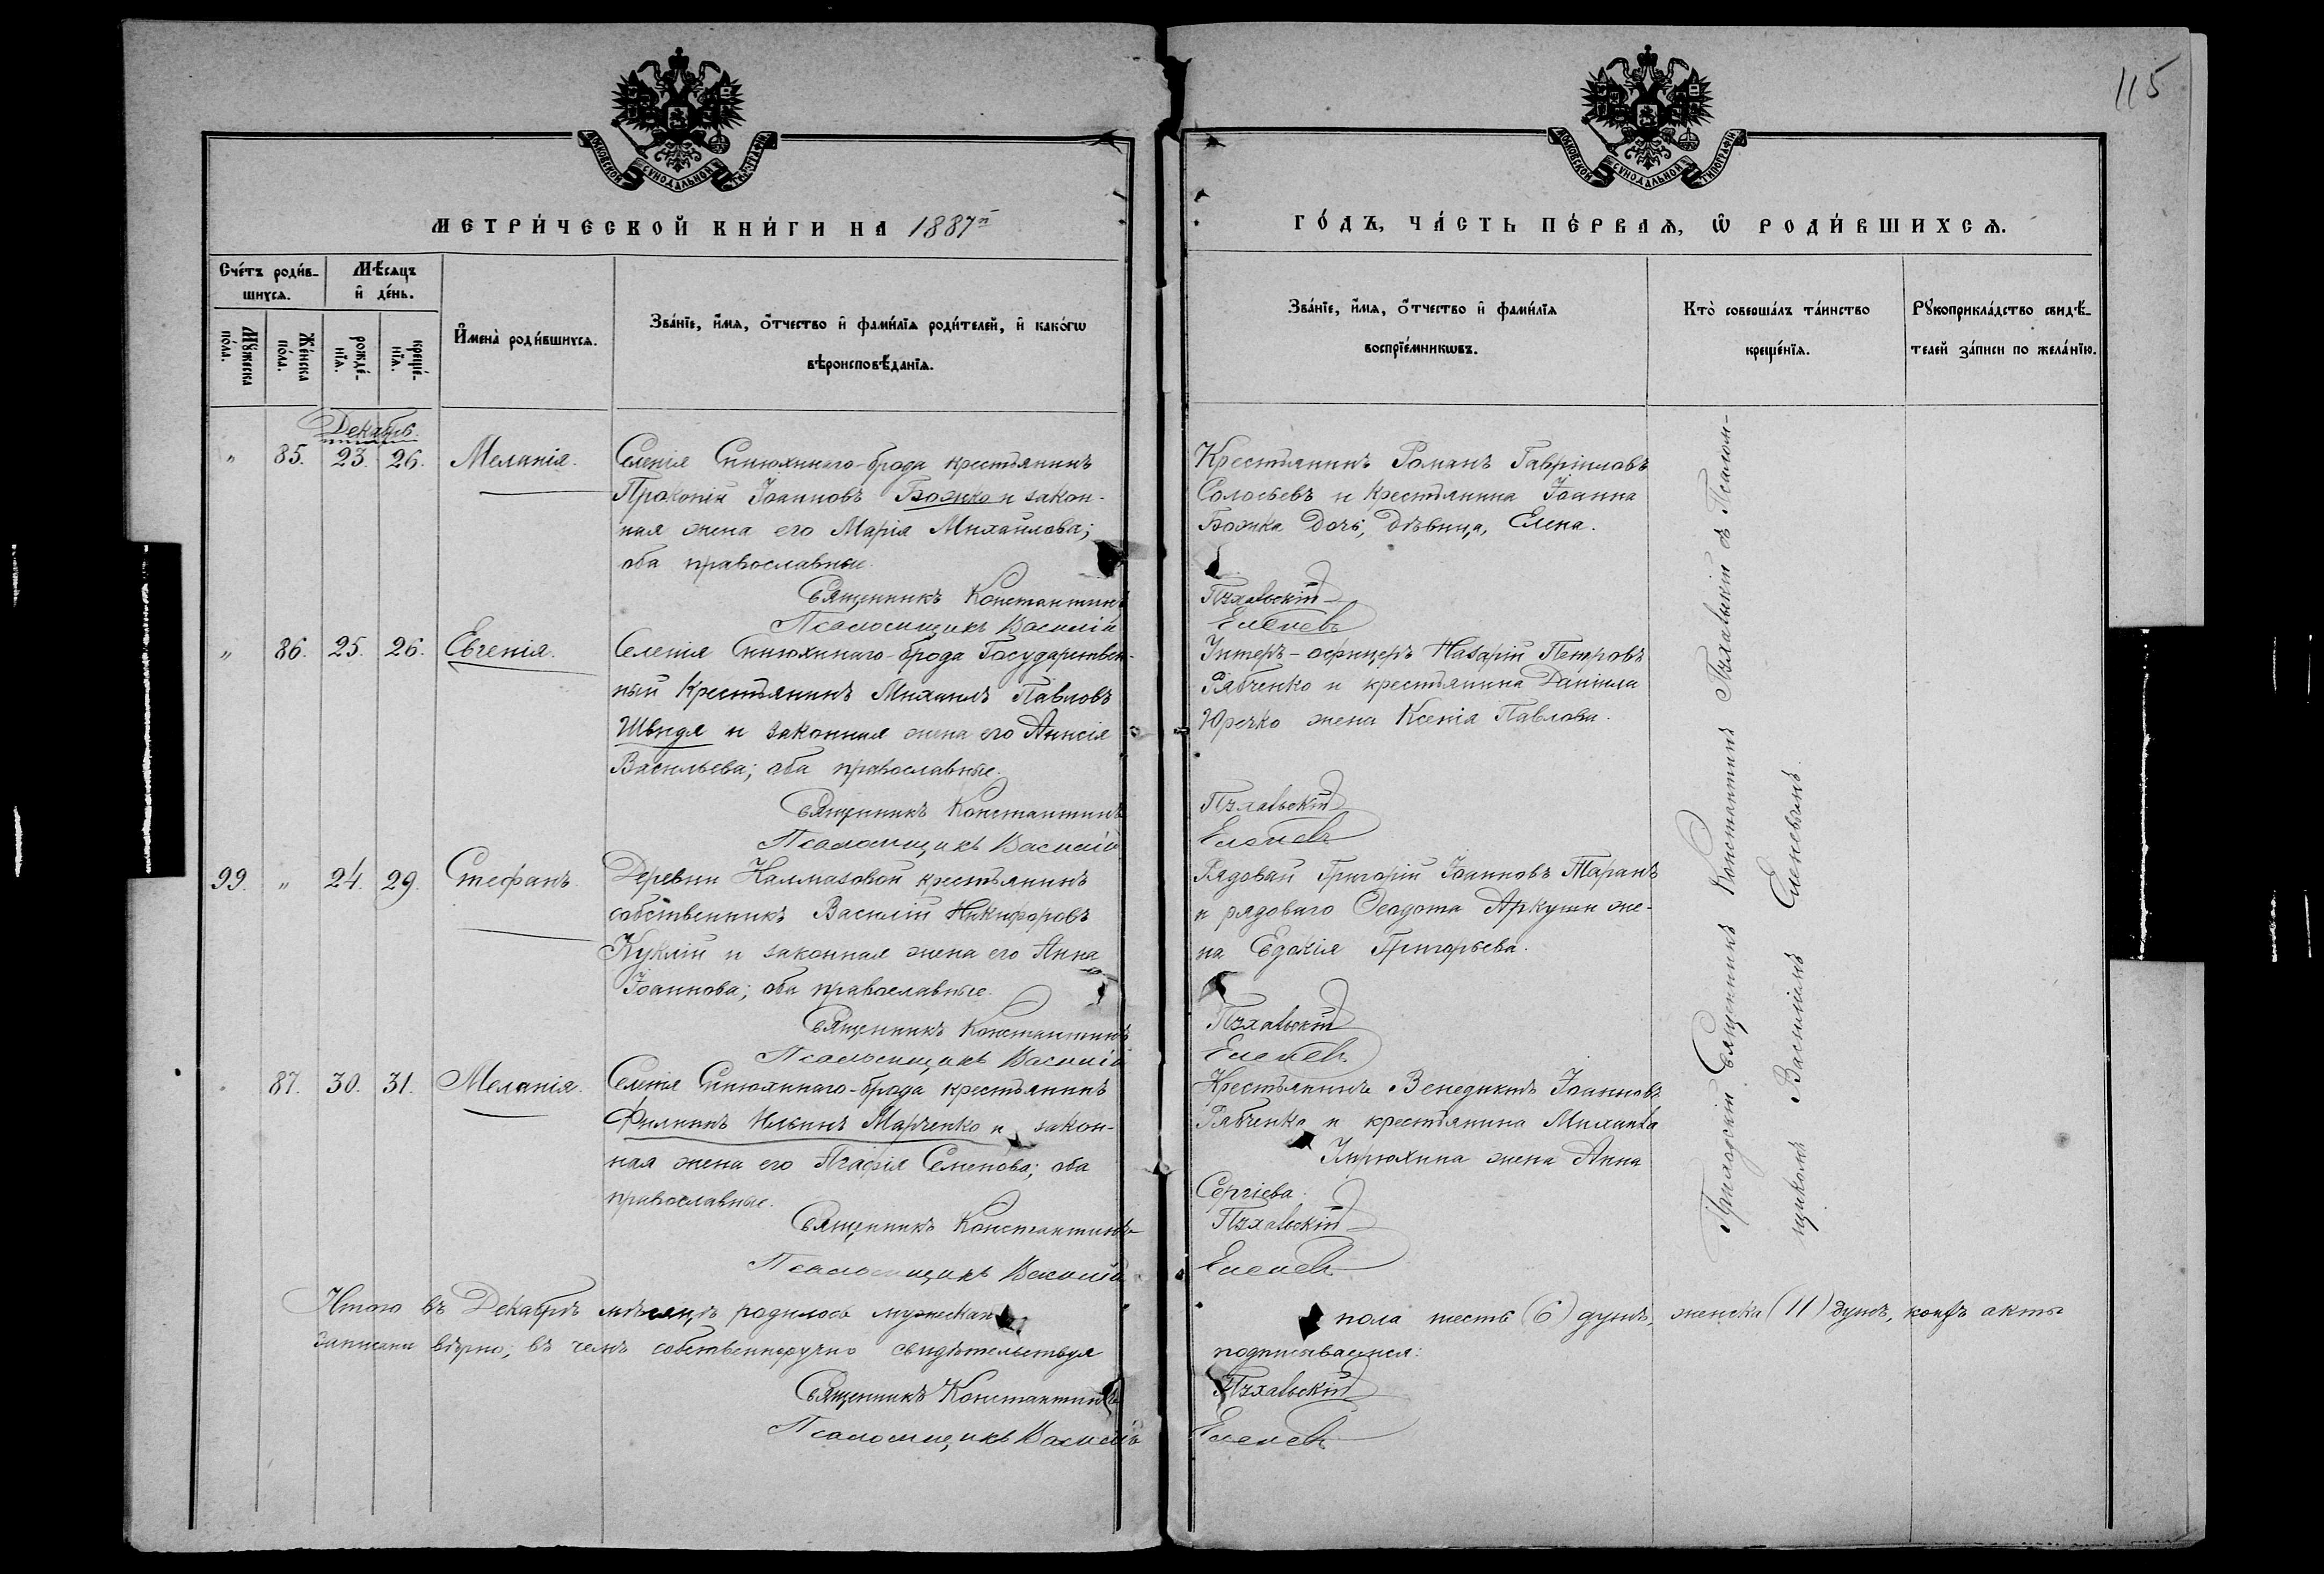 115
МОСКОВСКОЙ СѴНОДАЛЬНОЙ ТИПОГРАФІИ
МОСКОВСКОЙ СѴНОДАЛЬНОЙ ТИПОГРАФІИ
МЕТРИ́ЧЕСКОЙ КНИ́ГИ НА 1887й
ГО́ДЪ, ЧА́СТЬ ПЕ́РВАѦ, Ѡ РОДИ́ВШИХСѦ.
Сче́тъ роди́в-
шихсѧ.
Мѣ́сѧцъ
и де́нь.
Мꙋ́жеска
по́ла.
Же́нска
по́ла.
рожде́-
нїѧ.
креще́-
нїѧ.
Имена̀ роди́вшихсѧ.
Зва́нїе, и́мѧ, о́тчество и фами́лїѧ роди́телей, и како́гѡ
вѣроисповѣ́данїѧ.
Зва́нїе, и́мѧ, о́тчество и фами́лїѧ
воспрїе́мникѡвъ.
Кто̀ соверша́лъ та́инство
креще́нїѧ.
Рꙋкоприкла́дство свидѣ́-
телей за́писи по жела́нїю.
Декабрь.
" 85. 23. 26. Меланія.
Селенія Синюхинаго-брода крестьянинъ
Прокопій Іоанновъ Божко и закон-
ная жена его Марія Михаилова;
оба православные.
Священникъ Константинъ
Псаломщикъ Василій
Крестьянинъ Романъ Гавріиловъ
Соловьевъ и крестьянина Іоанна
Божка дочь, дѣвица, Елена.
Пухальскій
Еленевъ
" 86. 25. 26. Евгенія.
Селенія Синюхинаго-брода Государствен-
ный крестьянинъ Михаилъ Павловъ
Швидя и законная жена его Анисія
Васильева; оба православные.
Священникъ Константинъ
Псаломщикъ Василій
Унтеръ-офицеръ Назарій Петровъ
Рябченко и крестьянина Даніила
Юречко жена Ксенія Павлова.
Пухальскій
Еленевъ
99. " 24. 29. Стефанъ.
Деревни Калмазовой крестьянинъ
собственникъ Василій Никифоровъ
Куклій и законная жена его Анна
Іоаннова; оба православные.
Священникъ Константинъ
Псаломщикъ Василій
Рядовый Григорій Іоанновъ Таранъ
и рядоваго Ѳеодота Аркуши же-
на Евдокія Григорьева.
Пухальскій
Еленевъ
87. 30. 31. Меланія.
Селенія Синюхинаго-брода крестьянинъ
Филиппъ Ильинъ Марченко и закон-
ная жена его Агафія Семенова; оба
православные.
Священникъ Константинъ
Псаломщикъ Василій
Крестьянинъ Венедиктъ Іоанновъ
Рябченко и крестьянина Михаила
жена Анна
Сергіева.
Пухальскій
Еленевъ
Приходскій Священникъ Константинъ Пухальскій съ Псалом-
щикомъ Василіемъ Еленевымъ.
Итого въ Декабрѣ мѣсяцѣ родилось мужскаго пола шесть (6) душъ, женска (11) душъ, акты
записаны вѣрно, въ чемъ собственноручно свидѣтельствуя подписываемся:
Священникъ Константинъ Пухальскій
Псаломщикъ Василій Еленевъ